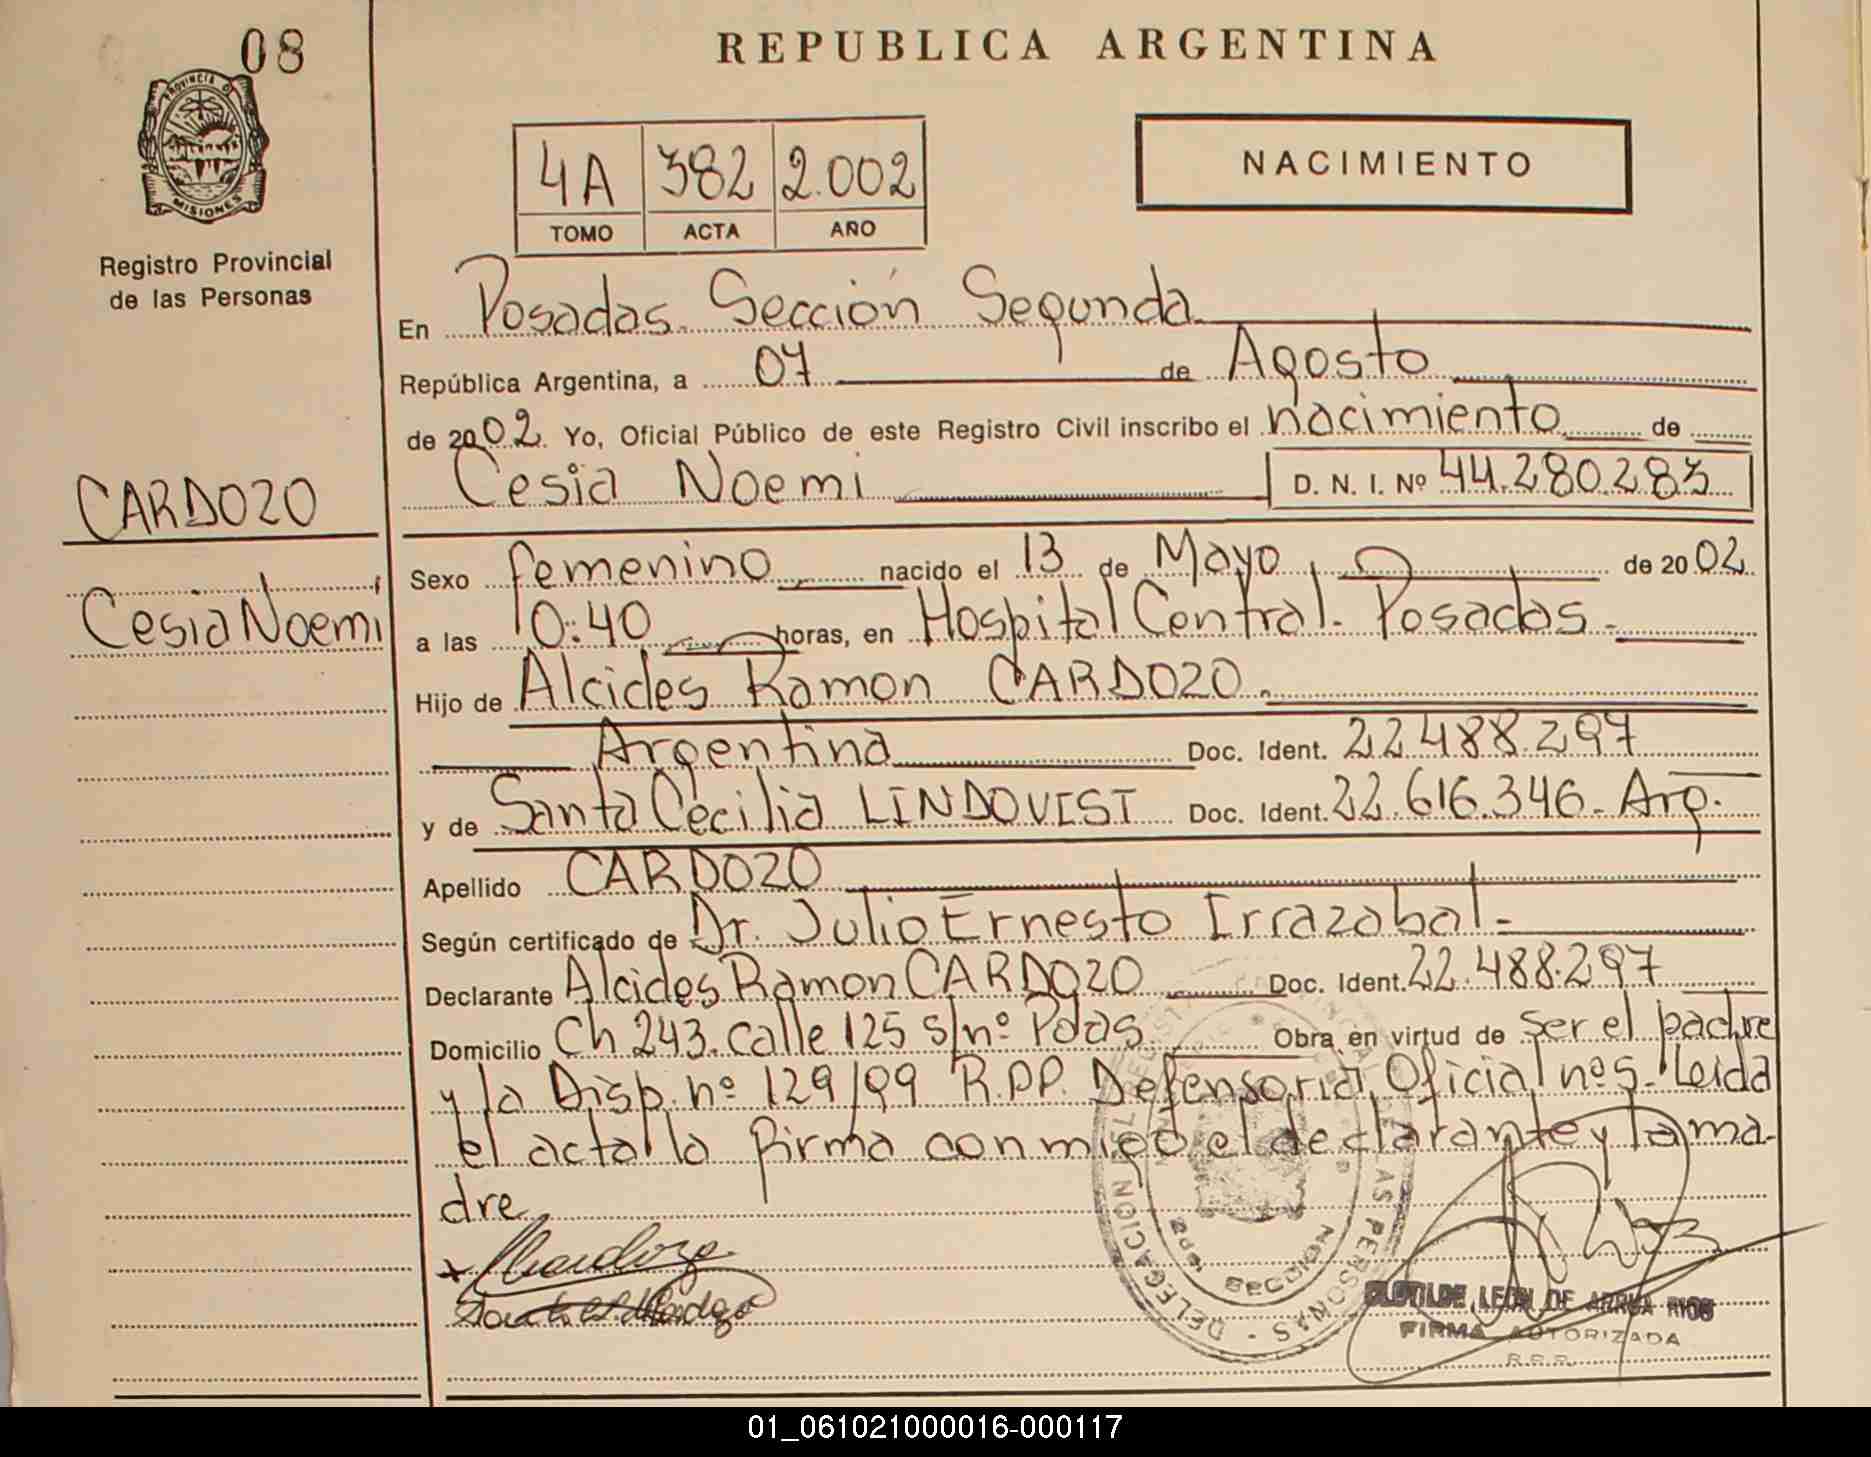 08
REPUBLICA ARGENTINA
PROVINCIA DE
MISIONES
Registro Provincial
de las Personas
4A 382 2.002
TOMO ACTA AÑO
NACIMIENTO
En Posadas. Sección Segunda
República Argentina, a 07 de Agosto
de 2002. Yo, Oficial Público de este Registro Civil inscribo el nacimiento de
Cesia Noemi D. N. I. Nº 44.280.283
CARDOZO
Cesia Noemí
Sexo femenino nacido el 13 de Mayo de 2002
a las 10:40 horas, en Hospital Central. Posadas.
Hijo de Alcides Ramon CARDOZO.
Argentina Doc. Ident. 22.488.297
y de Santa Cecilia LINDQVIST Doc. Ident. 22.616.346- Arg.
Apellido CARDOZO
Según certificado de Dr. Julio Ernesto Irrazabal-
Declarante Alcides Ramon CARDOZO Doc. Ident. 22.488.297
Domicilio Ch 243. calle 125 s/nº Pdas. Obra en virtud de ser el padre
y la Disp. nº 129/99 R.P.P. Defensoria Oficial nº5. Leida
el acta la firma conmigo el declarante y la ma-
dre
DELEGACION DEL REGISTRO PROVINCIAL DE LAS PERSONAS
SECCION
CLOTILDE LEON DE ARRUA RIOS
FIRMA AUTORIZADA
R.P.P.
01_061021000016-000117